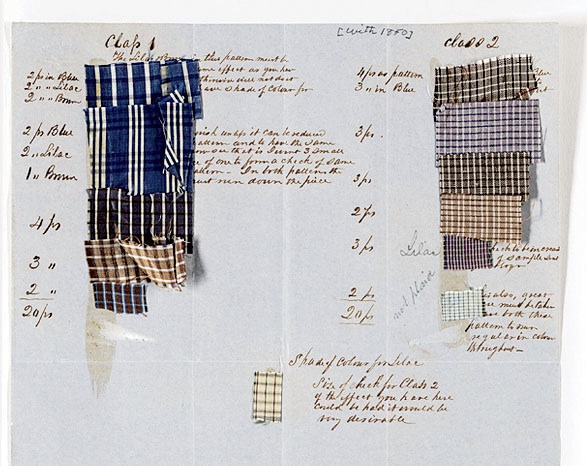 [with 1850]
Class 1
The Lilac Brown in this pattern must be
same effect as you have
otherwise will not do it
have shade of Colour for
2 ps in Blue
2 " " Lilac
2 " " Brown
2 ps Blue
2 " Lilac
1 " Brown
wish unless it can be reduced
pattern and to have the same
is that is I want 3 small
of one to form a check of same
pattern - In both patterns the
must run down the piece
4 ps
3 "
2 "
20 ps
Class 2
4 ps as pattern
3 " in Blue
3 ps
3 ps
2 ps
3 ps
2 ps
20 ps
Lilac
not plaid
check to be
of sample
also, great
must be taken
both these
pattern to run
regular in colour
throughout -
Shade of Colour for Lilac
Size of check for Class 2
if the effect you have here
could be had it would be
very desirable